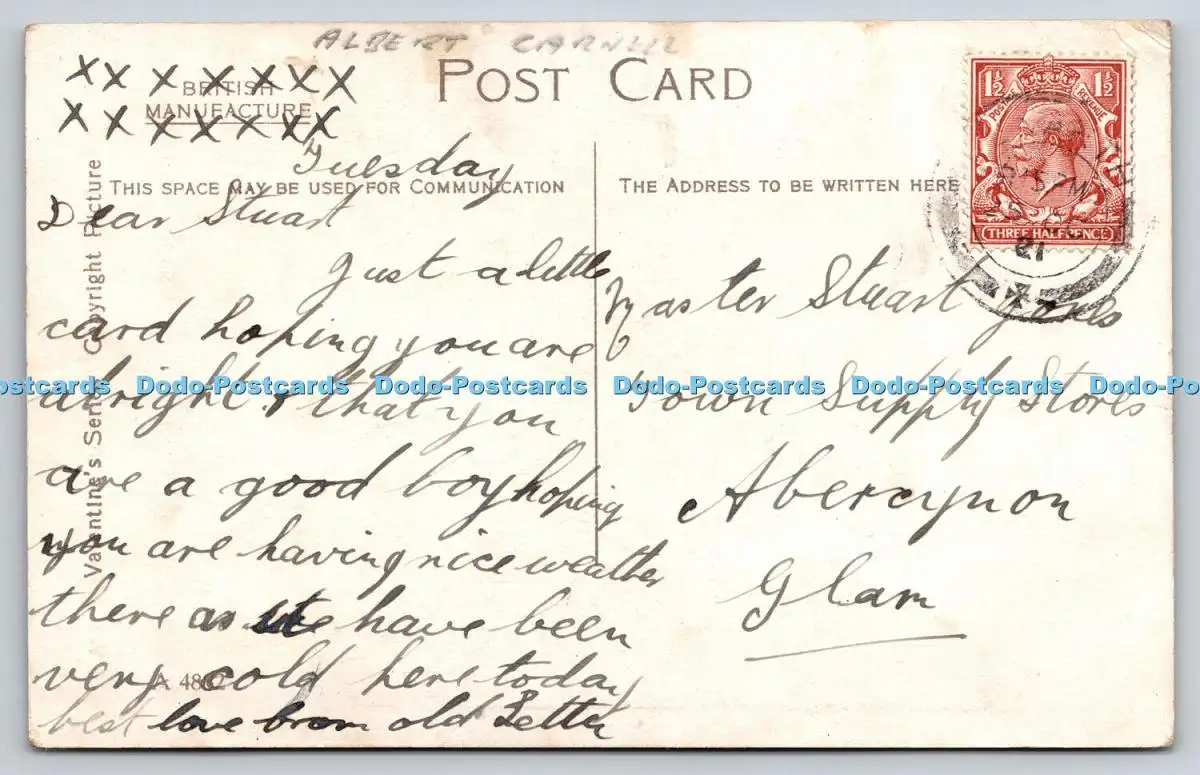 ALBERT
POST CARD
x x x x x x x x
BRITISH
MANUFACTURE
x x x x x x x
1½ 1½
POSTAGE REVENUE
THREE HALFPENCE
5 PM
21
THIS SPACE MAY BE USED FOR COMMUNICATION
THE ADDRESS TO BE WRITTEN HERE
Valentine's Series Copyright Picture
Tuesday
Dear Stuart
Just a little
card hoping you are
alright & that you
are a good boy hoping
you are having nice weather
there as we have been
very cold here today
best love from old
A 48
Master Stuart Jones
Town Supply Stores
Abercynon
Glam
ostcards Dodo-Postcards Dodo-Postcards Dodo-Postcards Dodo-Postcards Dodo-Po